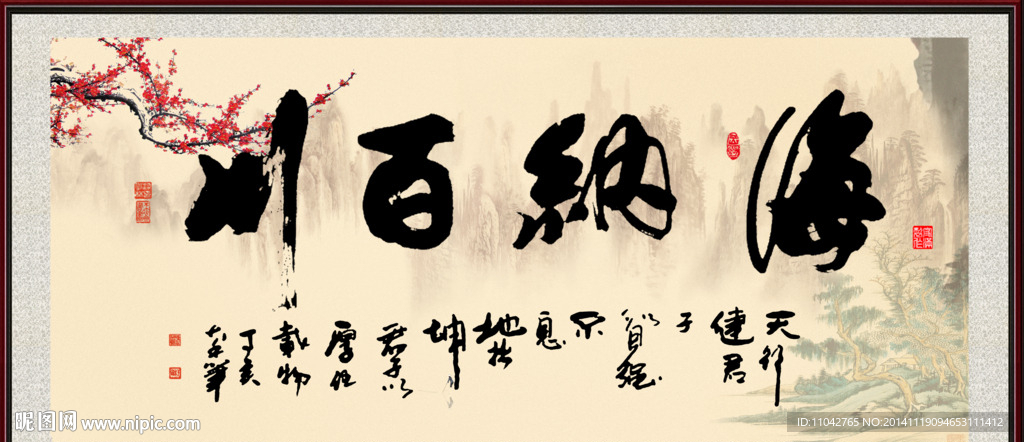 海納百川
天行
健君
子
以自强
不
息
地势
坤
君子以
厚德
載物
丁亥
昵图网 www.nipic.com
ID:11042765 NO:20141119094653111412